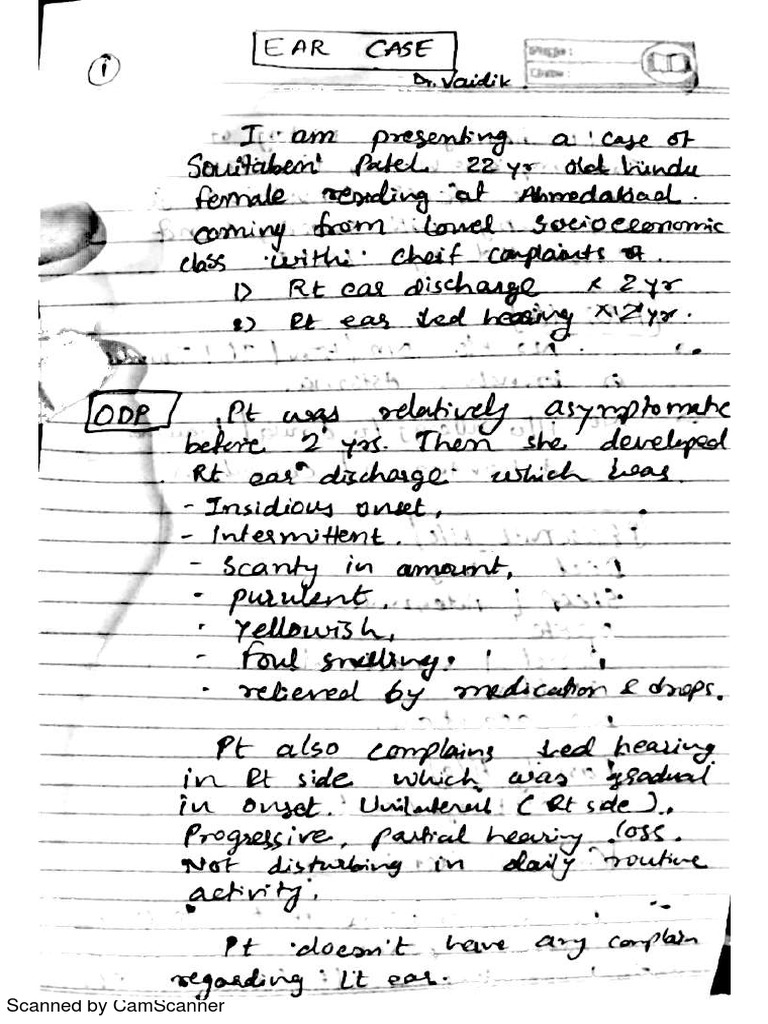 EAR CASE
1
Page:
Date:
Dr. Vaidik.
I am presenting a case of
Patel 22 yr old hindu
female residing at Ahmedabad.
coming from Lower Socioeconomic
class with cheif complaints of.
1) Rt ear discharge x 2 yr
2) Rt ear ↓ed hearing x 2 yr.
ODP Pt was relatively asymptomatic
before 2 yrs. Then she developed
Rt ear discharge which was
- Insidious onset,
- Intermittent.
- Scanty in amount,
- purulent,
- Yellowish,
- foul smelling.
- relieved by medication & drops.
Pt also complains ↓ed hearing
in Rt side which was gradual
in onset. Unilateral (Rt side).
Progressive, partial hearing loss.
Not disturbing in daily routine
activity.
Pt doesn't have any complain
regarding Lt ear.
Scanned by CamScanner